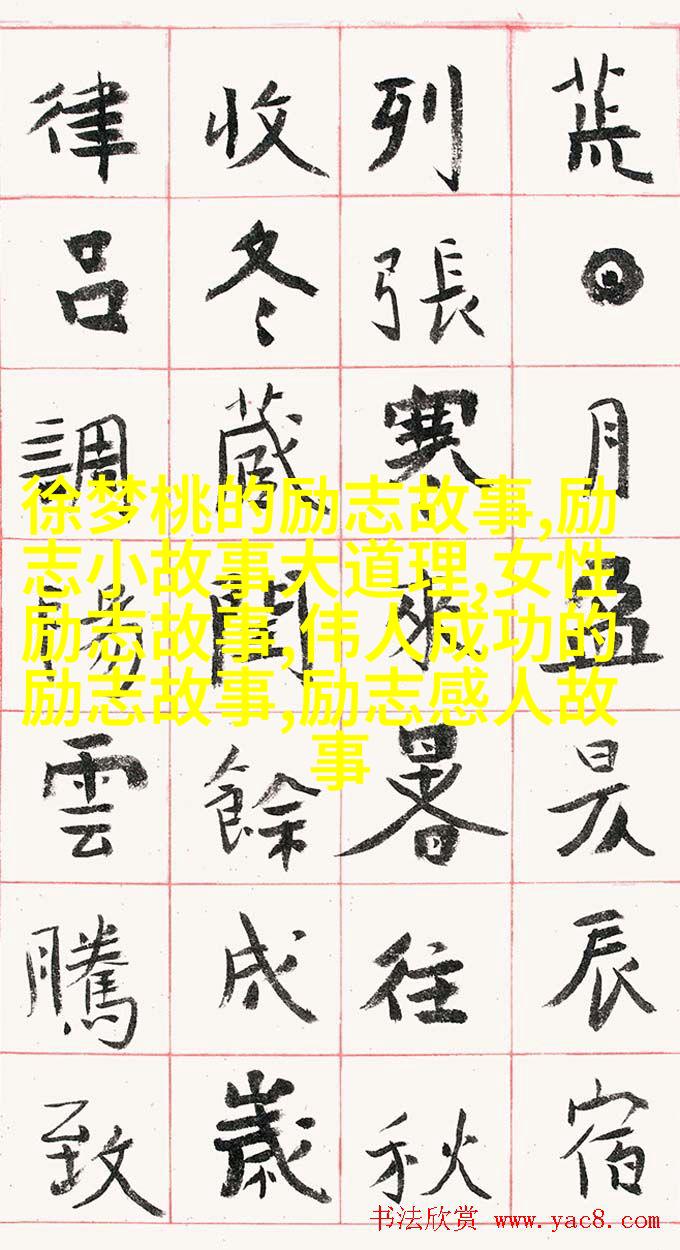 荒日月盈昃辰宿
列張寒來暑往秋
收冬藏閏餘成歲
律呂調陽雲騰致
徐梦桃的励志故事,励
志小故事大道理,女性
励志故事,伟人成功的
励志故事,励志感人故
事
书法欣赏 www.yac8.com